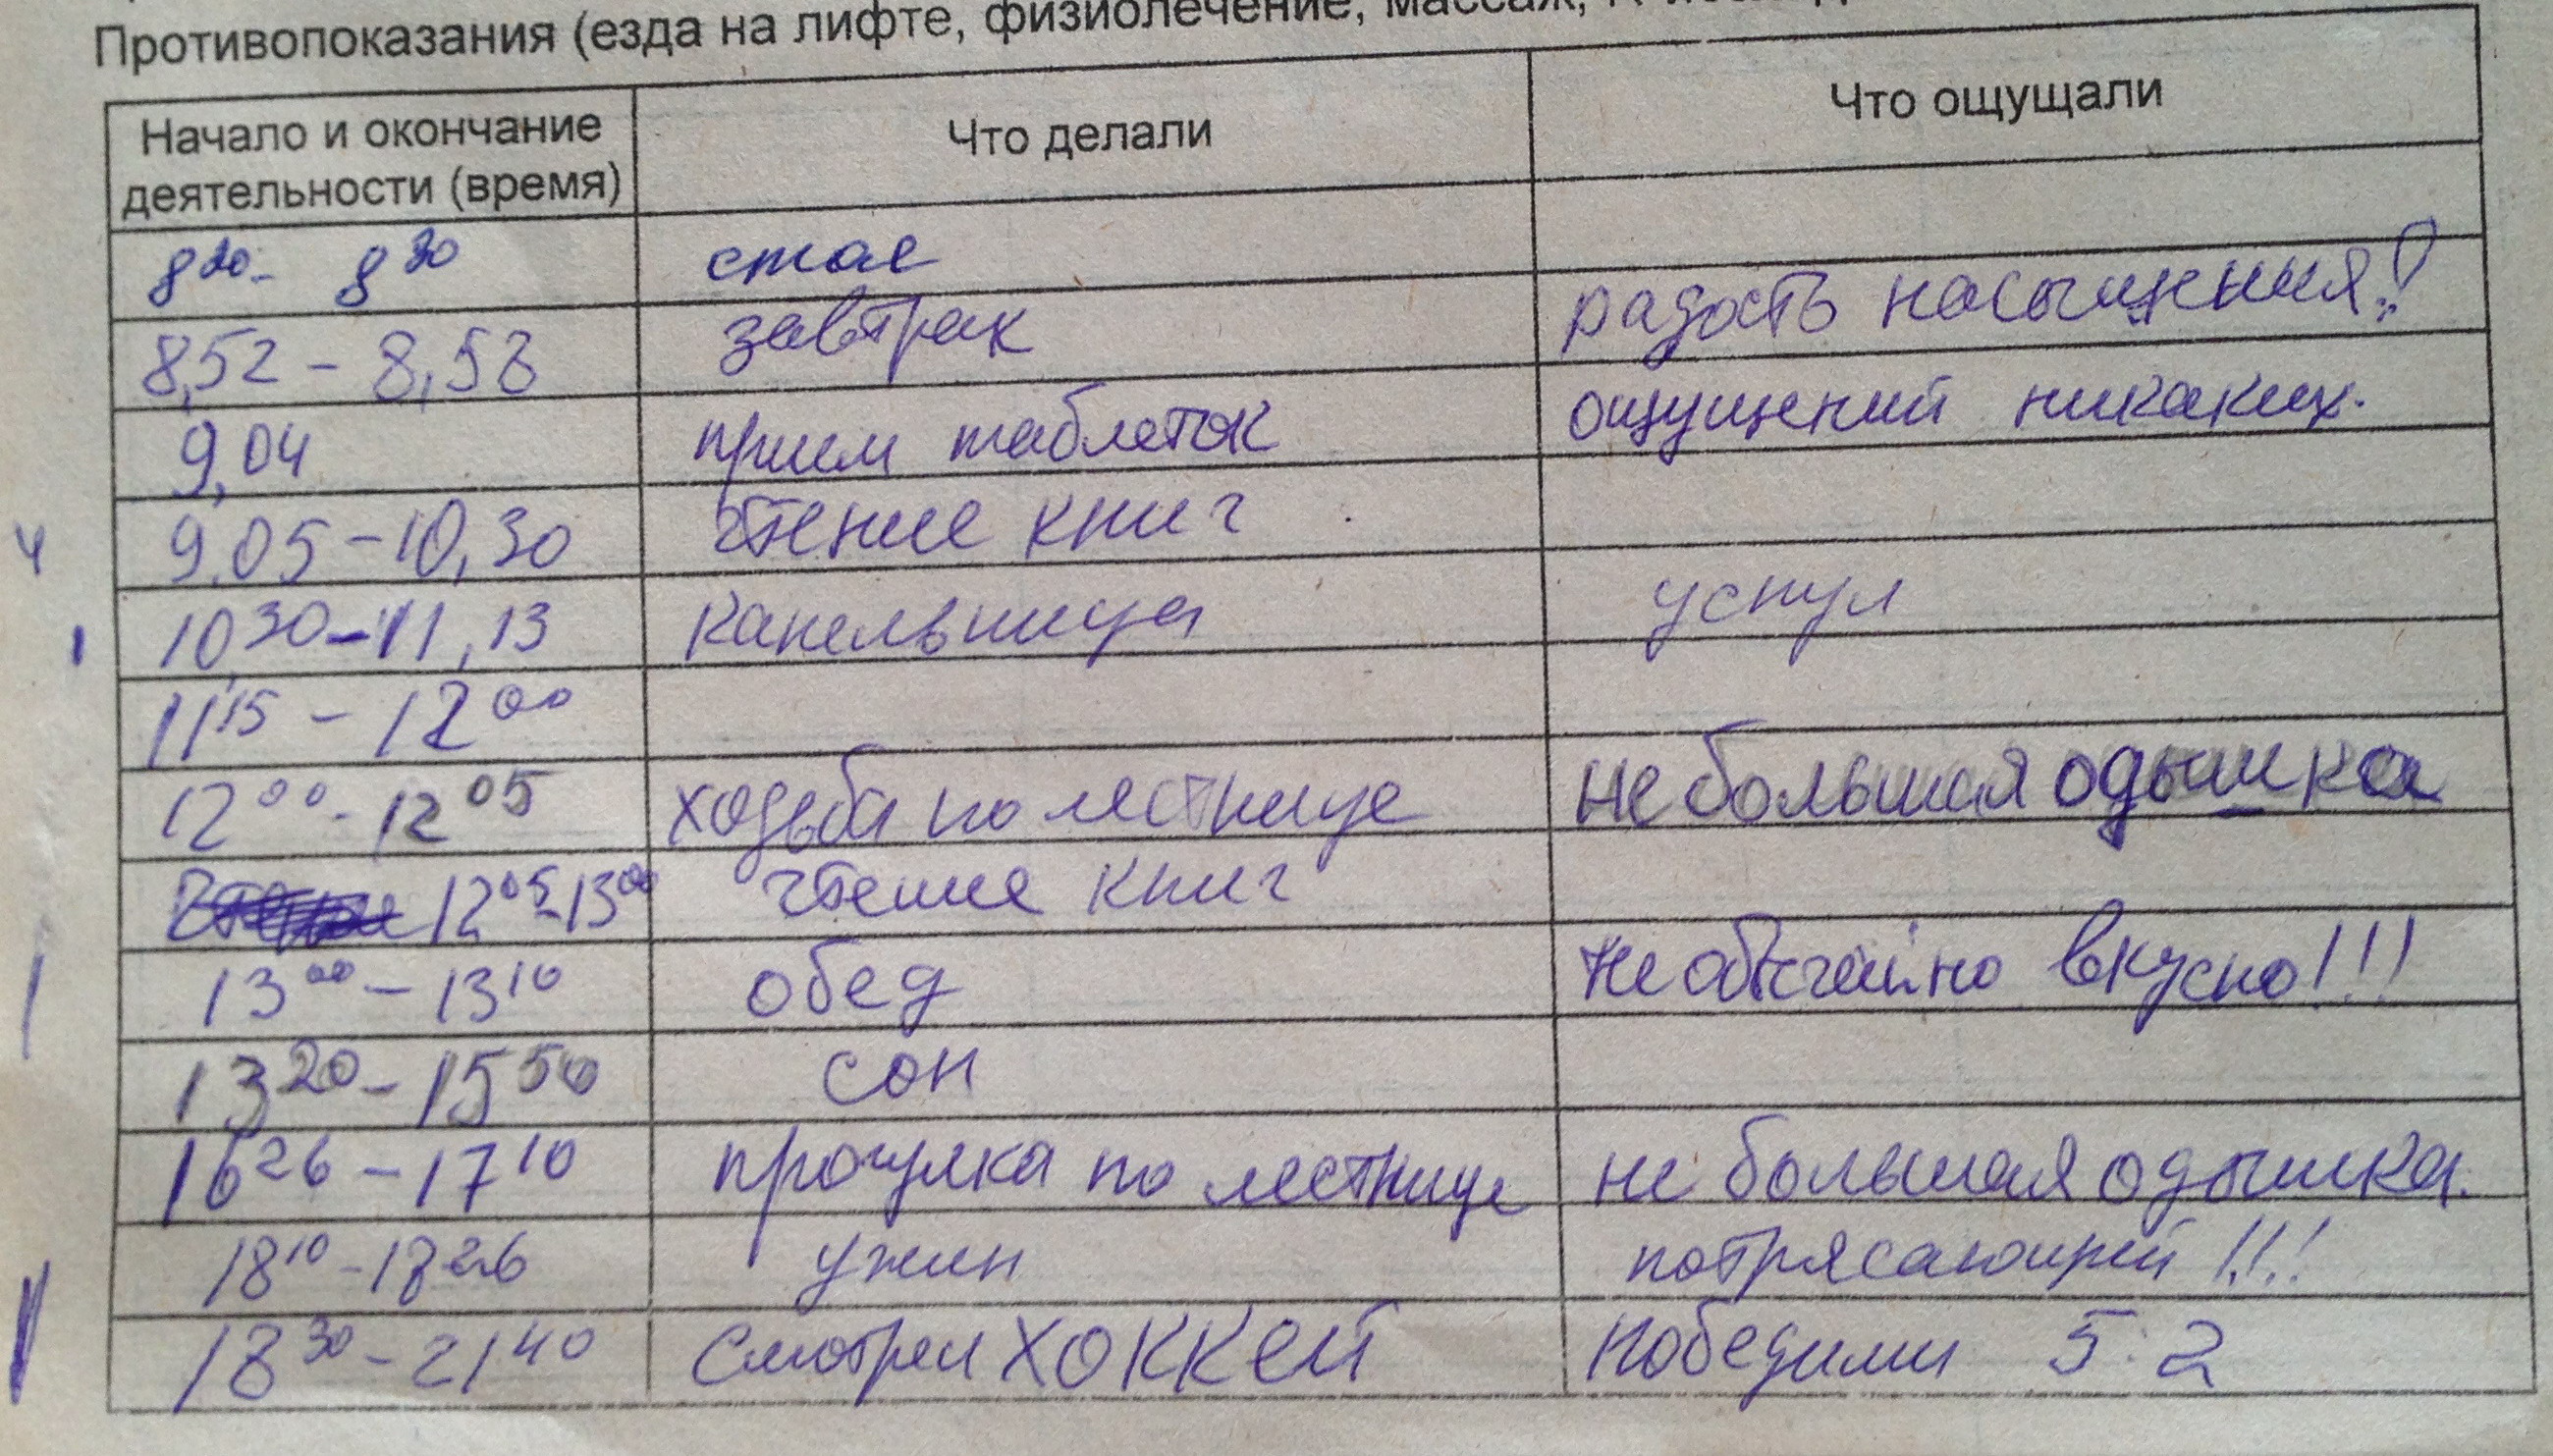 Противопоказания (езда на лифте, физиолечение, массаж,
Начало и окончание деятельности (время) Что делали Что ощущали
8 20 - 8 30
8,52 - 8,58 завтрак радость насыщения!
9,04 прием таблеток ощущений никаких.
9.05 - 10,30 чтение книг
10,30 - 11,13 капельница уснул
11 15 - 12 00
12 00 - 12 05 ходьба по лестнице не большая одышка
12 05 - 13 00 чтение книг
13 00 - 13 10 обед не обычайно вкусно!!!
13 20 - 15 50 сон
16 26 - 17 10 прогулка по лестнице не большая одышка.
18 10 - 18 26 ужин потрясающий!!!
18 30 - 21 40 Смотрел ХОККЕЙ Победили 5:2